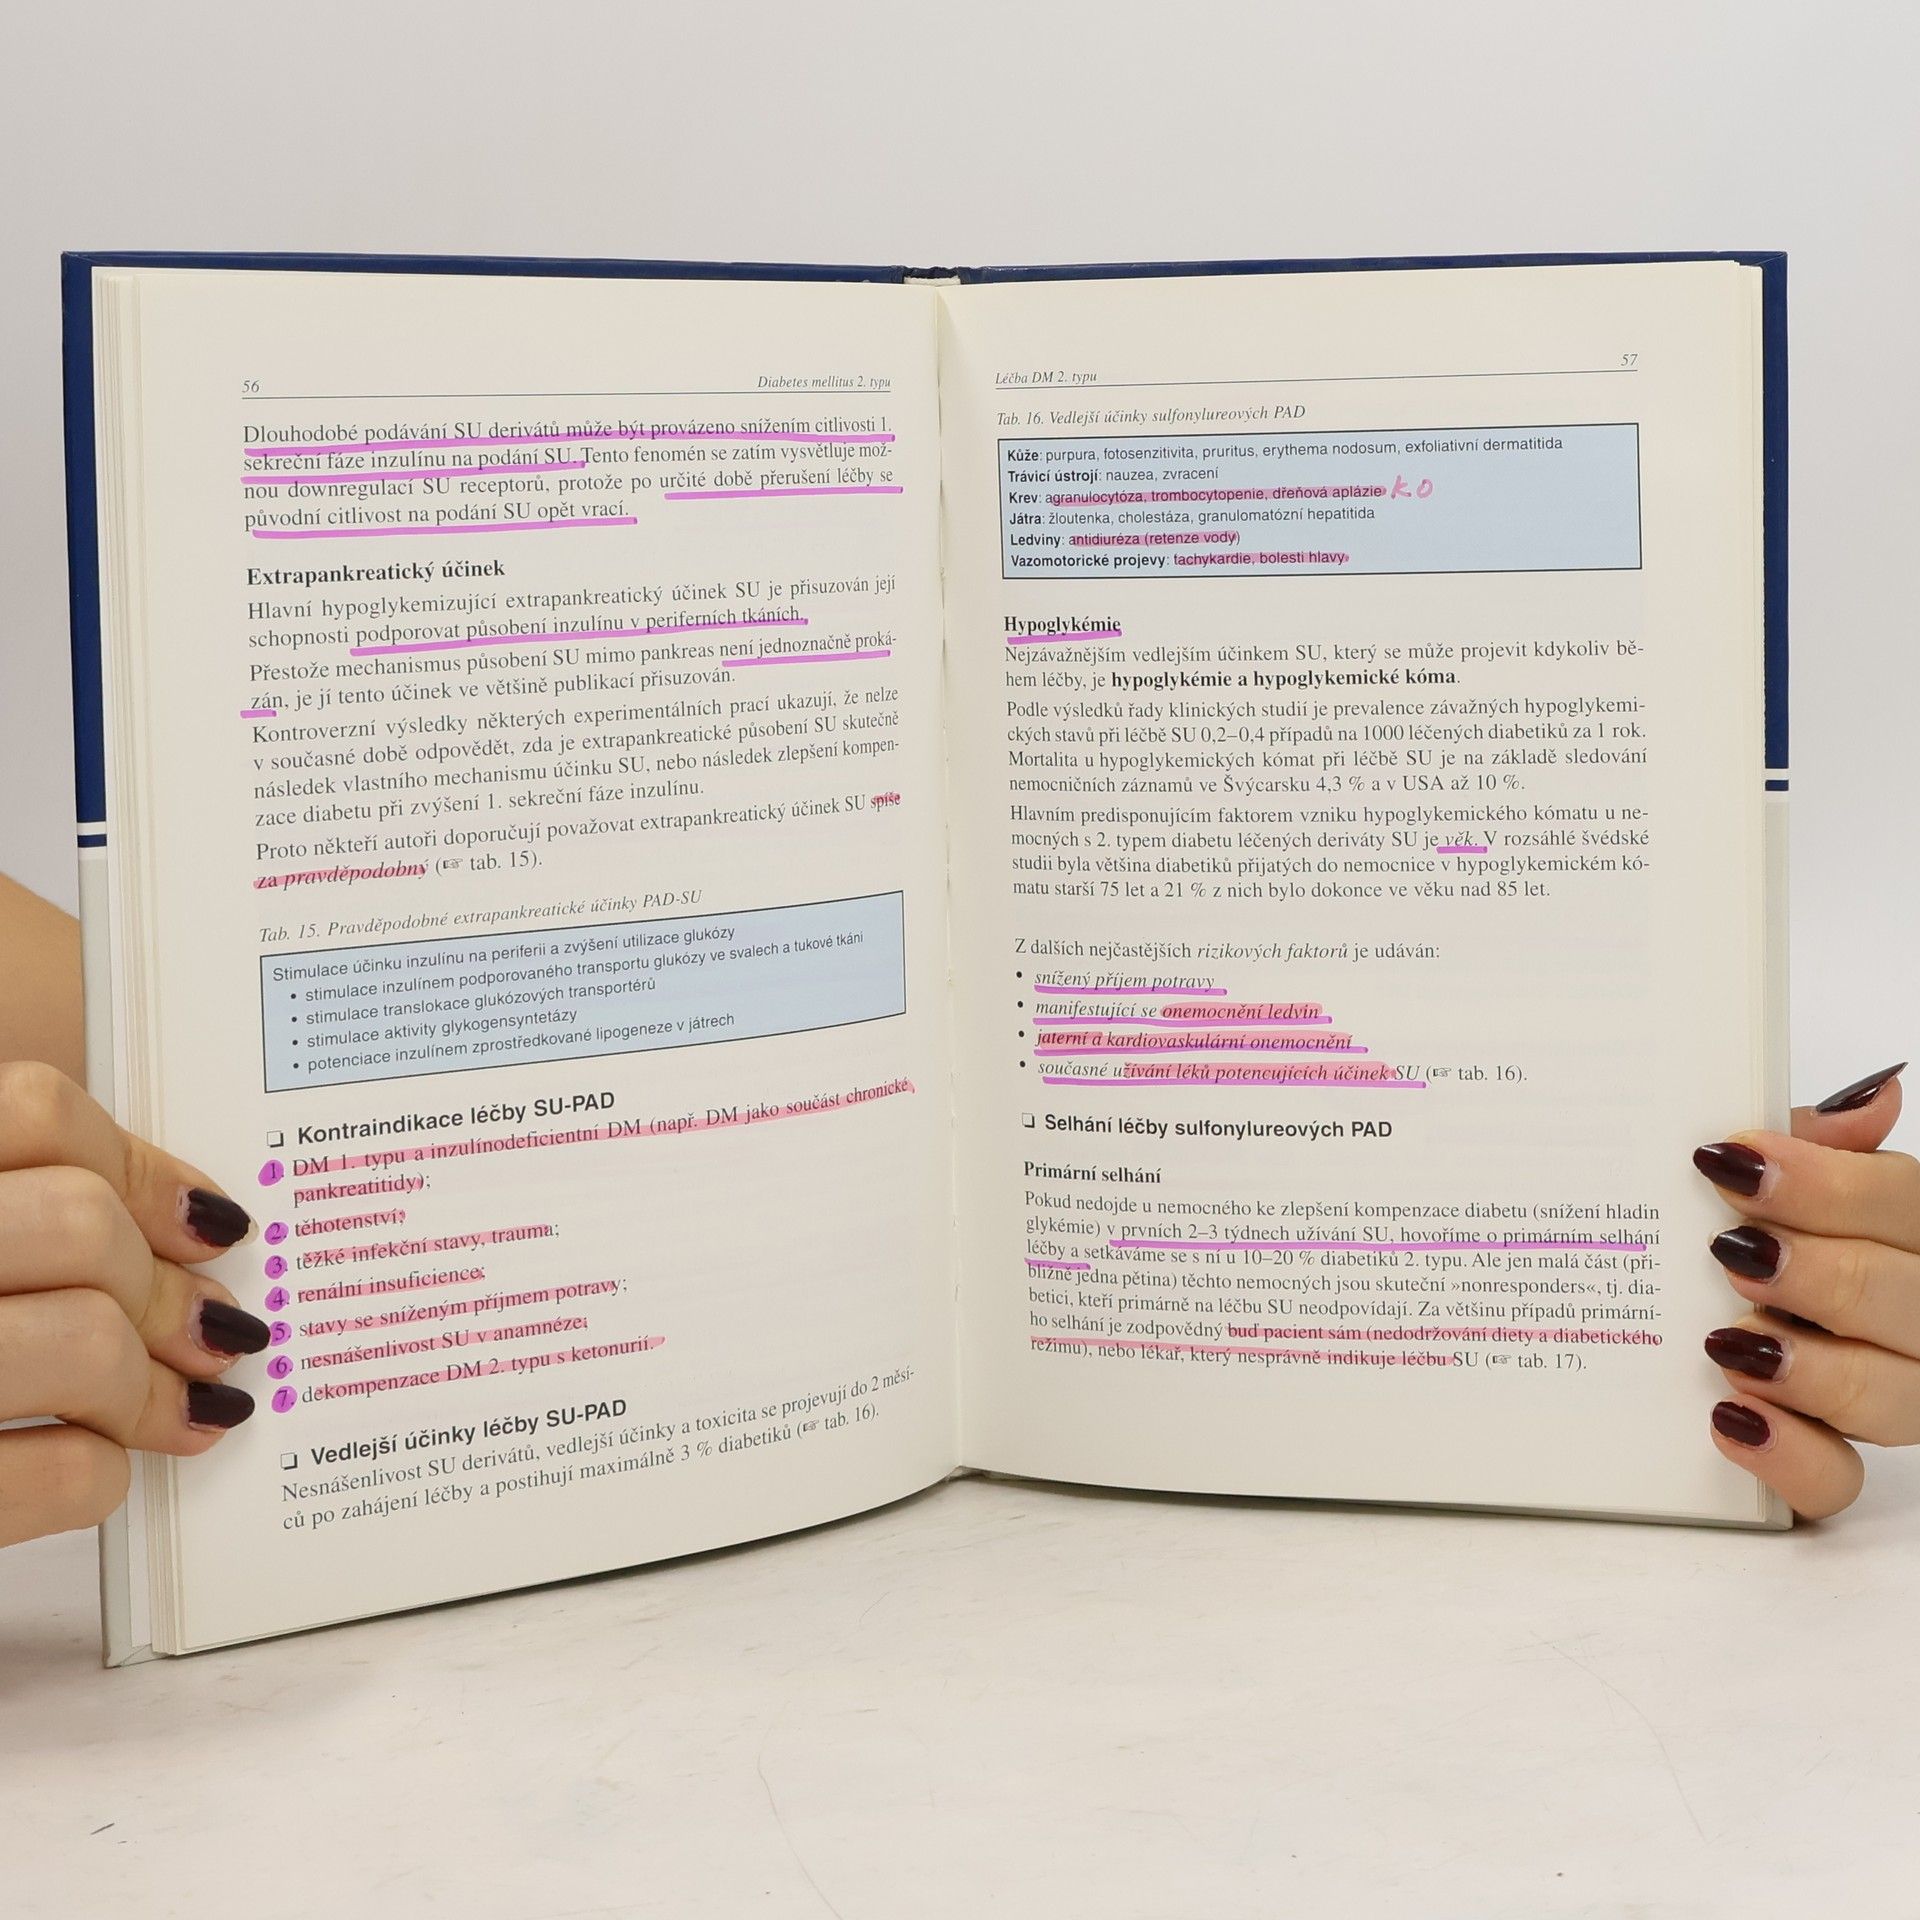 56
Diabetes mellitus 2. typu
Dlouhodobé podávání SU derivátů může být provázeno snížením citlivosti 1.
sekreční fáze inzulínu na podání SU. Tento fenomén se zatím vysvětluje mož-
nou downregulací SU receptorů, protože po určité době přerušení léčby se
původní citlivost na podání SU opět vrací.
Extrapankreatický účinek
Hlavní hypoglykemizující extrapankreatický účinek SU je přisuzován její
schopnosti podporovat působení inzulínu v periferních tkáních.
Přestože mechanismus působení SU mimo pankreas není jednoznačně proká-
zán, je jí tento účinek ve většině publikací přisuzován.
Kontroverzní výsledky některých experimentálních prací ukazují, že nelze
v současné době odpovědět, zda je extrapankreatické působení SU skutečně
následek vlastního mechanismu účinku SU, nebo následek zlepšení kompen-
zace diabetu při zvýšení 1. sekreční fáze inzulínu.
Proto někteří autoři doporučují považovat extrapankreatický účinek SU spíše
za pravděpodobný (☞ tab. 15).
Tab. 15. Pravděpodobné extrapankreatické účinky PAD-SU
Stimulace účinku inzulínu na periferii a zvýšení utilizace glukózy
• stimulace inzulínem podporovaného transportu glukózy ve svalech a tukové tkáni
• stimulace translokace glukózových transportérů
• stimulace aktivity glykogensyntetázy
• potenciace inzulínem zprostředkované lipogeneze v játrech
❏ Kontraindikace léčby SU-PAD
1. DM 1. typu a inzulínodeficientní DM (např. DM jako součást chronické
pankreatitidy);
2. těhotenství;
3. těžké infekční stavy, trauma;
4. renální insuficience;
5. stavy se sníženým příjmem potravy;
6. nesnášenlivost SU v anamnéze;
7. dekompenzace DM 2. typu s ketonurií.
❏ Vedlejší účinky léčby SU-PAD
Nesnášenlivost SU derivátů, vedlejší účinky a toxicita se projevují do 2 měsí-
ců po zahájení léčby a postihují maximálně 3 % diabetiků (☞ tab. 16).
Léčba DM 2. typu
57
Tab. 16. Vedlejší účinky sulfonylureových PAD
Kůže: purpura, fotosenzitivita, pruritus, erythema nodosum, exfoliativní dermatitida
Trávicí ústrojí: nauzea, zvracení
Krev: agranulocytóza, trombocytopenie, dřeňová aplázie KO
Játra: žloutenka, cholestáza, granulomatózní hepatitida
Ledviny: antidiuréza (retenze vody)
Vazomotorické projevy: tachykardie, bolesti hlavy
Hypoglykémie
Nejzávažnějším vedlejším účinkem SU, který se může projevit kdykoliv bě-
hem léčby, je hypoglykémie a hypoglykemické kóma.
Podle výsledků řady klinických studií je prevalence závažných hypoglykemi-
ckých stavů při léčbě SU 0,2–0,4 případů na 1000 léčených diabetiků za 1 rok.
Mortalita u hypoglykemických kómat při léčbě SU je na základě sledování
nemocničních záznamů ve Švýcarsku 4,3 % a v USA až 10 %.
Hlavním predisponujícím faktorem vzniku hypoglykemického kómatu u ne-
mocných s 2. typem diabetu léčených deriváty SU je věk. V rozsáhlé švédské
studii byla většina diabetiků přijatých do nemocnice v hypoglykemickém kó-
matu starší 75 let a 21 % z nich bylo dokonce ve věku nad 85 let.
Z dalších nejčastějších rizikových faktorů je udáván:
• snížený příjem potravy
• manifestující se onemocnění ledvin
• jaterní a kardiovaskulární onemocnění
• současné užívání léků potencujících účinek SU (☞ tab. 16).
❏ Selhání léčby sulfonylureových PAD
Primární selhání
Pokud nedojde u nemocného ke zlepšení kompenzace diabetu (snížení hladin
glykémie) v prvních 2–3 týdnech užívání SU, hovoříme o primárním selhání
léčby a setkáváme se s ní u 10–20 % diabetiků 2. typu. Ale jen malá část (při-
bližně jedna pětina) těchto nemocných jsou skuteční »nonresponders«, tj. dia-
betici, kteří primárně na léčbu SU neodpovídají. Za většinu případů primární-
ho selhání je zodpovědný buď pacient sám (nedodržování diety a diabetického
režimu), nebo lékař, který nesprávně indikuje léčbu SU (☞ tab. 17).